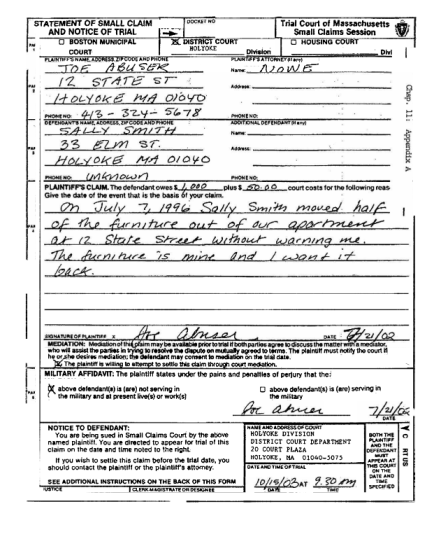 STATEMENT OF SMALL CLAIM
AND NOTICE OF TRIAL
DOCKET NO
Trial Court of Massachusetts
Small Claims Session
BOSTON MUNICIPAL
COURT
X DISTRICT COURT
HOLYOKE
Division
HOUSING COURT
Divi
PLAINTIFF'S NAME, ADDRESS, ZIP CODE AND PHONE
JOE ABUSER
12 STATE ST
HOLYOKE MA 01040
PHONE NO: 413-324-5678
PLAINTIFF'S ATTORNEY (if any)
Name: NONE
Address:
PHONE NO:
DEFENDANT'S NAME, ADDRESS, ZIP CODE AND PHONE
SALLY SMITH
33 ELM ST.
HOLYOKE MA 01040
PHONE NO: Unknown
ADDITIONAL DEFENDANT (if any)
Name:
Address:
PHONE NO:
PLAINTIFF'S CLAIM. The defendant owes $ 1,000 plus $ 50.00 court costs for the following reas
Give the date of the event that is the basis of your claim.
On July 7, 1996 Sally Smith moved half
of the furniture out of our apartment
at 12 State Street without warning me.
The furniture is mine and I want it
back.
SIGNATURE OF PLAINTIFF X Joe Abuser DATE 7/21/02
MEDIATION: Mediation of this claim may be available prior to trial if both parties agree to discuss the matter with a mediator,
who will assist the parties in trying to resolve the dispute on mutually agreed to terms. The plaintiff must notify the court if
he or she desires mediation; the defendant may consent to mediation on the trial date.
X The plaintiff is willing to attempt to settle this claim through court mediation.
MILITARY AFFIDAVIT: The plaintiff states under the pains and penalties of perjury that the:
X above defendant(s) is (are) not serving in
the military and at present live(s) or work(s)
above defendant(s) is (are) serving in
the military
Joe Abuser 7/21/02
DATE
NOTICE TO DEFENDANT:
You are being sued in Small Claims Court by the above
named plaintiff. You are directed to appear for trial of this
claim on the date and time noted to the right.
If you wish to settle this claim before the trial date, you
should contact the plaintiff or the plaintiff's attorney.
SEE ADDITIONAL INSTRUCTIONS ON THE BACK OF THIS FORM
NAME AND ADDRESS OF COURT
HOLYOKE DIVISION
DISTRICT COURT DEPARTMENT
20 COURT PLAZA
HOLYOKE, MA 01040-5075
DATE AND TIME OF TRIAL
10/15/02 AT 9:30 AM
DATE TIME
BOTH THE
PLAINTIFF
AND THE
DEFENDANT
MUST
APPEAR AT
THIS COURT
ON THE
DATE AND
TIME
SPECIFIED
JUSTICE
CLERK-MAGISTRATE OR DESIGNEE
Chap. 11: Appendix A